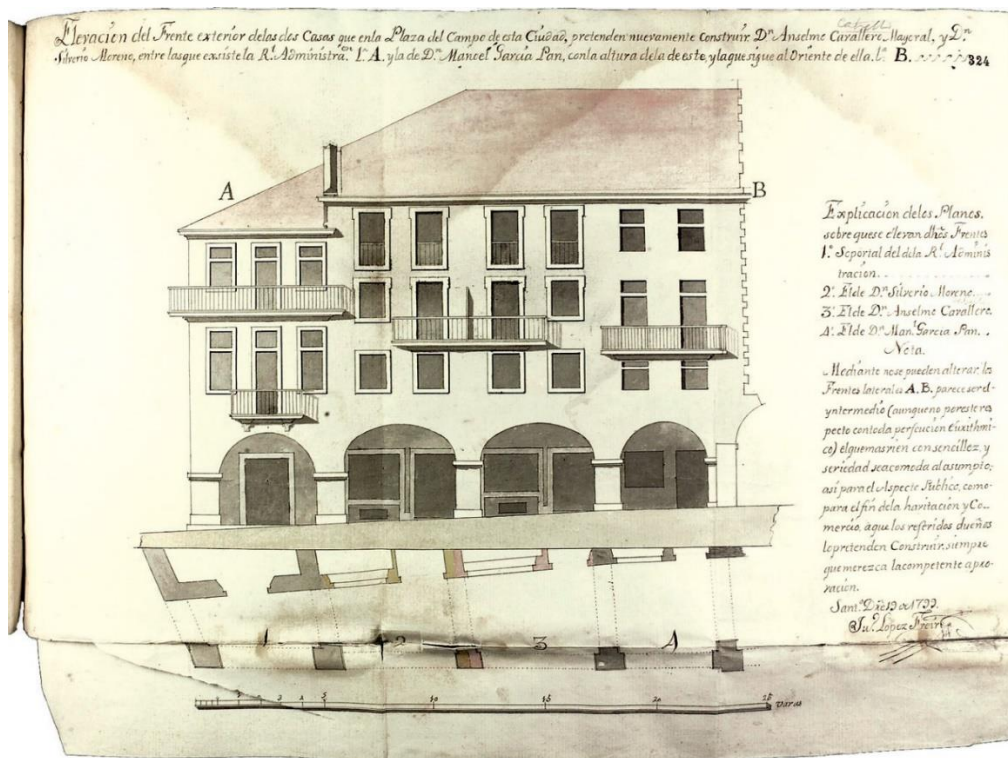 Elevacion del Frente exterior delas dos Casas que enla Plaza del Campo de esta Ciudad, pretenden nuevamente Construir Dⁿ Anselmo Cavallero Mayoral, y Dⁿ
Silverio Moreno, entre lasque exsiste la Rˡ. Administra.ᵒⁿ lᵃ. A, y la de Dⁿ. Manoel Garcia Pan, conla altura dela de este, y laque sigue al Oriente de ella. lᵃ. B.
324
A
B
Explicacion delos Planos,
sobre que se elevan dhos Frentes
1.º Soportal del dela Rˡ. Adminis
tracion.
2.º El de Dⁿ Silverio Moreno
3.º El de Dⁿ Anselmo Cavallero.
4.º El de Dⁿ Manˡ. Garcia Pan.
Nota.
Mediante nose pueden alterar, los
Frentes laterales A. B. parece ser el
yntermedio (aunque no por este res
pecto con toda perfeccion Euxithmi-
co) el que mas bien con sencillez, y
seriedad se acomoda al asumpto;
asi para el Aspecto Publico, como
para el fin dela havitacion y Co-
mercio, aque los referidos dueños
lo pretenden Construir, siempre
que merezca la competente apro-
vacion.
Santº. Dre 19 de 1799.
Juⁿ. Lopez Freire
1 2 3 4
1 2 3 4 5 10 15 20 25 Varas